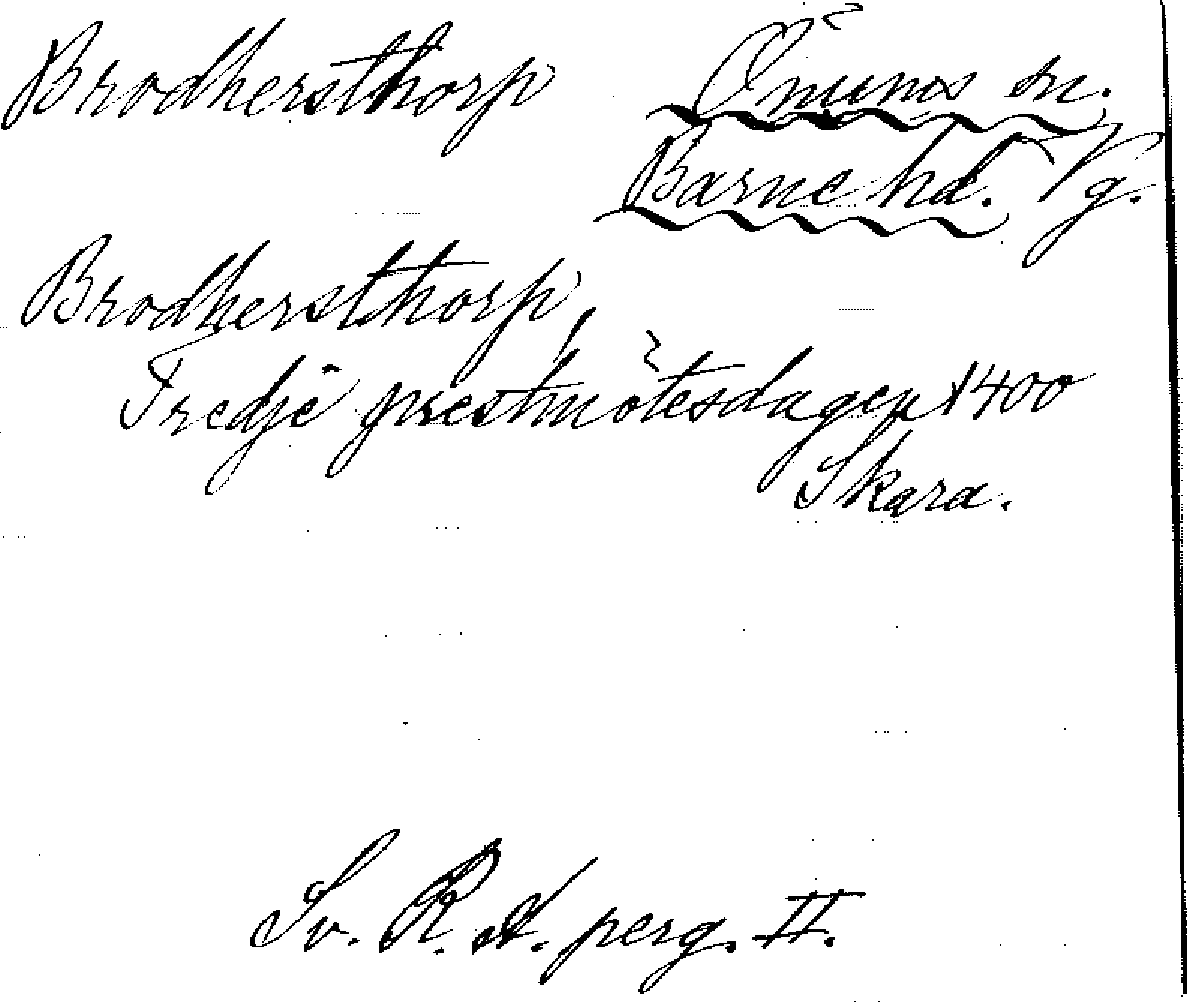 Brodhersthorp Önums sn.
Barne hd. Vg.
Brodhersthorp,
Tredje prestmötesdagen 1400
Skara.
Sv. R. A. perg. II.